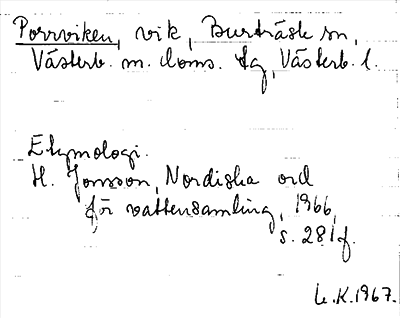 Porrviken, vik, Burträsk sn,
Västerb. m. doms. tg, Västerb. l.
Etymologi.
H. Jonsson, Nordiska ord
för vattensamling, 1966,
s. 281f.
K. 1967.